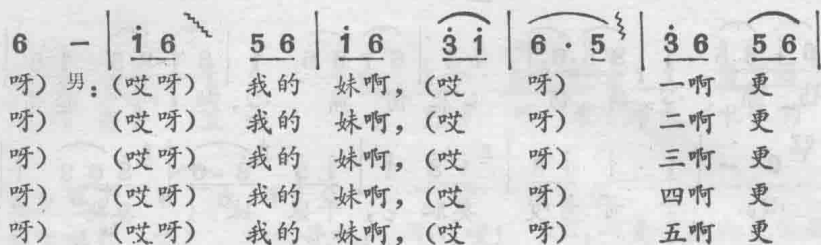 6 － | i̇ 6 5 6 | i̇ 6 3̇ i̇ | 6 · 5 | 3̇ 6 5 6 |
呀) 男：(哎呀) 我的 妹啊，(哎 呀) 一啊 更
呀) (哎呀) 我的 妹啊，(哎 呀) 二啊 更
呀) (哎呀) 我的 妹啊，(哎 呀) 三啊 更
呀) (哎呀) 我的 妹啊，(哎 呀) 四啊 更
呀) (哎呀) 我的 妹啊，(哎 呀) 五啊 更